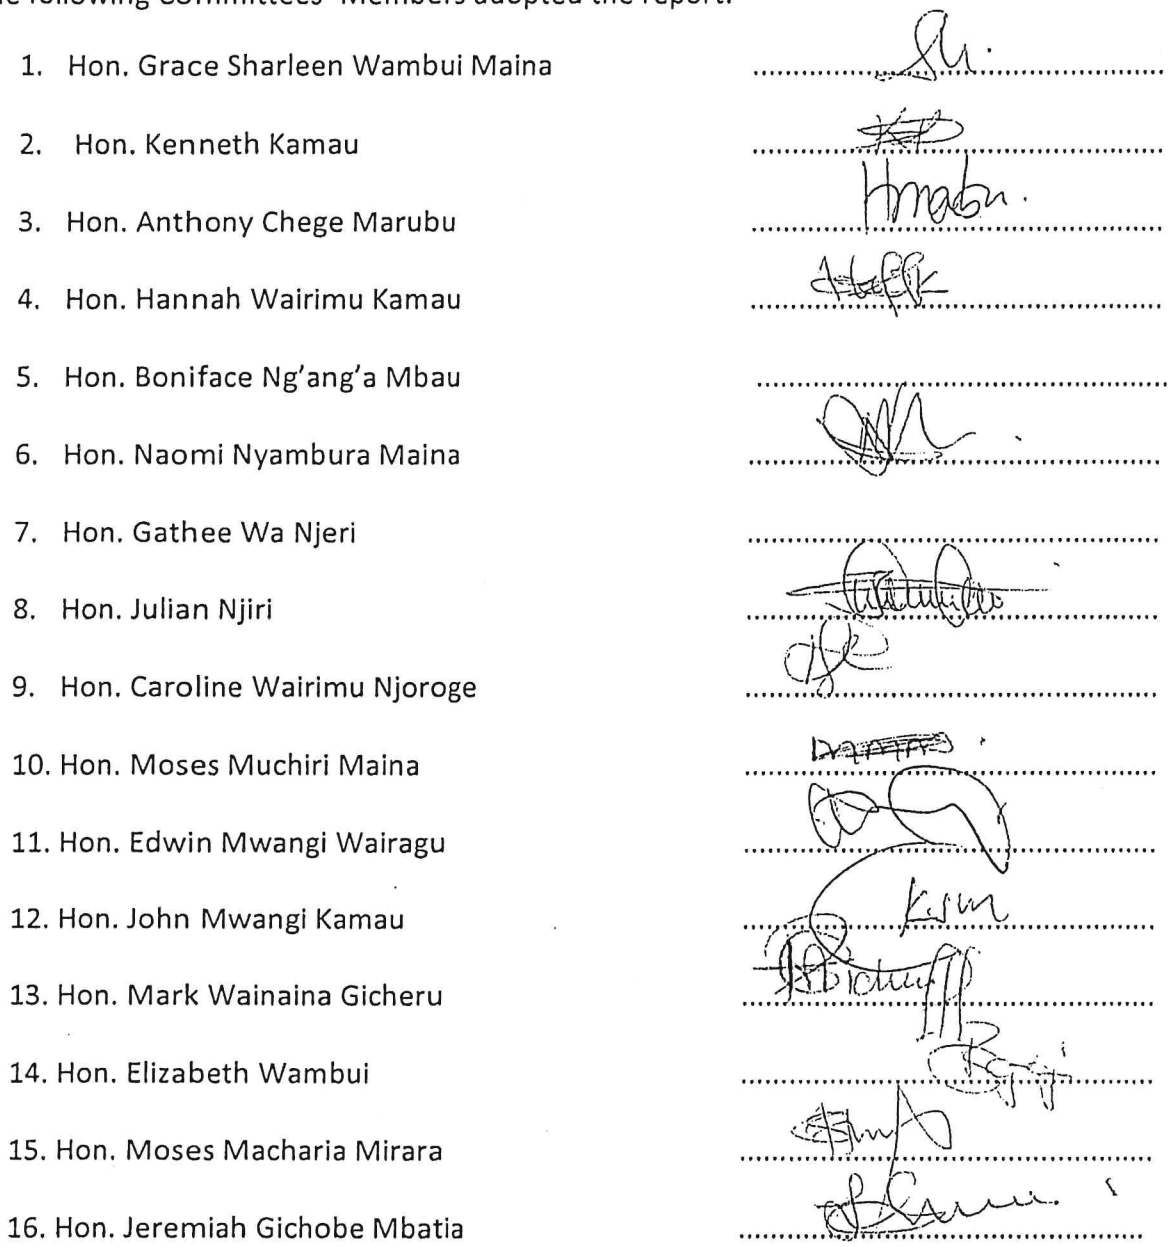 following Committees' Members adopted the report.
1. Hon. Grace Sharleen Wambui Maina ........................................
2. Hon. Kenneth Kamau ........................................
3. Hon. Anthony Chege Marubu ........................................
4. Hon. Hannah Wairimu Kamau ........................................
5. Hon. Boniface Ng'ang'a Mbau ........................................
6. Hon. Naomi Nyambura Maina ........................................
7. Hon. Gathee Wa Njeri ........................................
8. Hon. Julian Njiri ........................................
9. Hon. Caroline Wairimu Njoroge ........................................
10. Hon. Moses Muchiri Maina ........................................
11. Hon. Edwin Mwangi Wairagu ........................................
12. Hon. John Mwangi Kamau ........................................
13. Hon. Mark Wainaina Gicheru ........................................
14. Hon. Elizabeth Wambui ........................................
15. Hon. Moses Macharia Mirara ........................................
16. Hon. Jeremiah Gichobe Mbatia ........................................